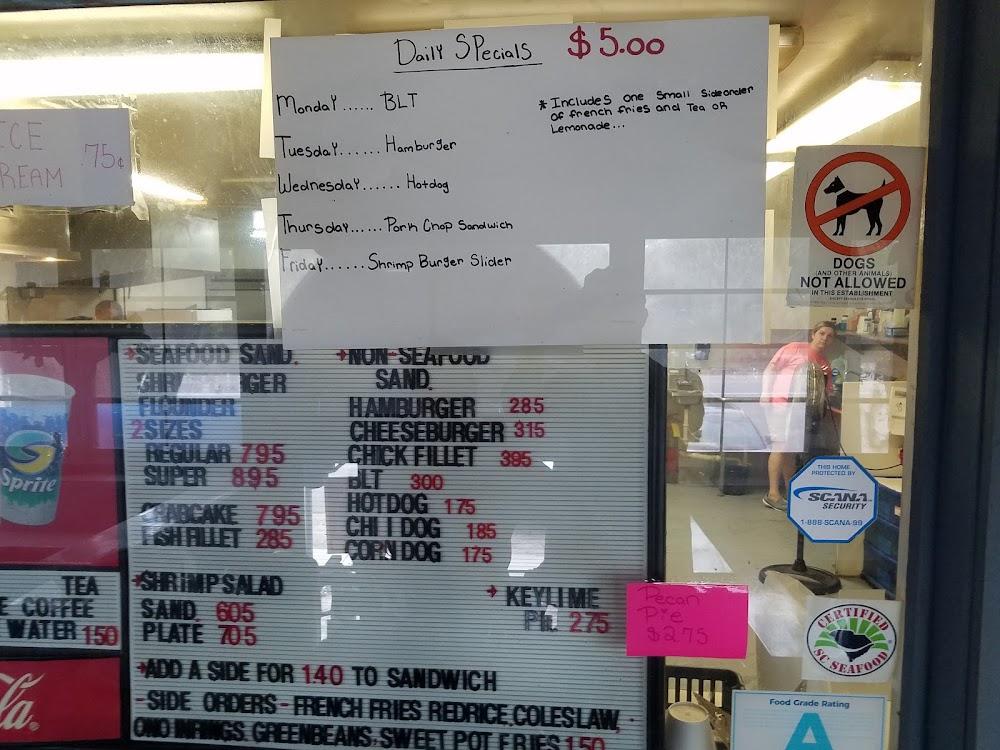 Daily Specials $5.00
Monday...... BLT
* Includes one Small Side order
of french fries and Tea OR
Lemonade...
Tuesday...... Hamburger
Wednesday...... Hotdog
Thursday...... Pork Chop Sandwich
Friday...... Shrimp Burger Slider
ICE
CREAM
.75¢
DOGS
(AND OTHER ANIMALS)
NOT ALLOWED
IN THIS ESTABLISHMENT
SEAFOOD SAND.
FLOUNDER
2 SIZES
REGULAR 795
SUPER 895
CRABCAKE 795
FISH FILLET 285
SHRIMP SALAD
SAND. 605
PLATE 705
NON-SEAFOOD
SAND.
HAMBURGER 285
CHEESEBURGER 315
CHICK FILLET 395
BLT 300
HOTDOG 175
CHI I DOG 185
CORN DOG 175
KEYLIME
PIE 275
ADD A SIDE FOR 140 TO SANDWICH
-SIDE ORDERS- FRENCH FRIES REDRICE, COLESLAW,
GREENBEANS, SWEET POT FRIES 150
Sprite
TEA
COFFEE
WATER 150
la
Pecan
Pie
$2.75
THIS HOME
PROTECTED BY
SCANA
SECURITY
1-888-SCANA-99
CERTIFIED
SC SEAFOOD
Food Grade Rating
A